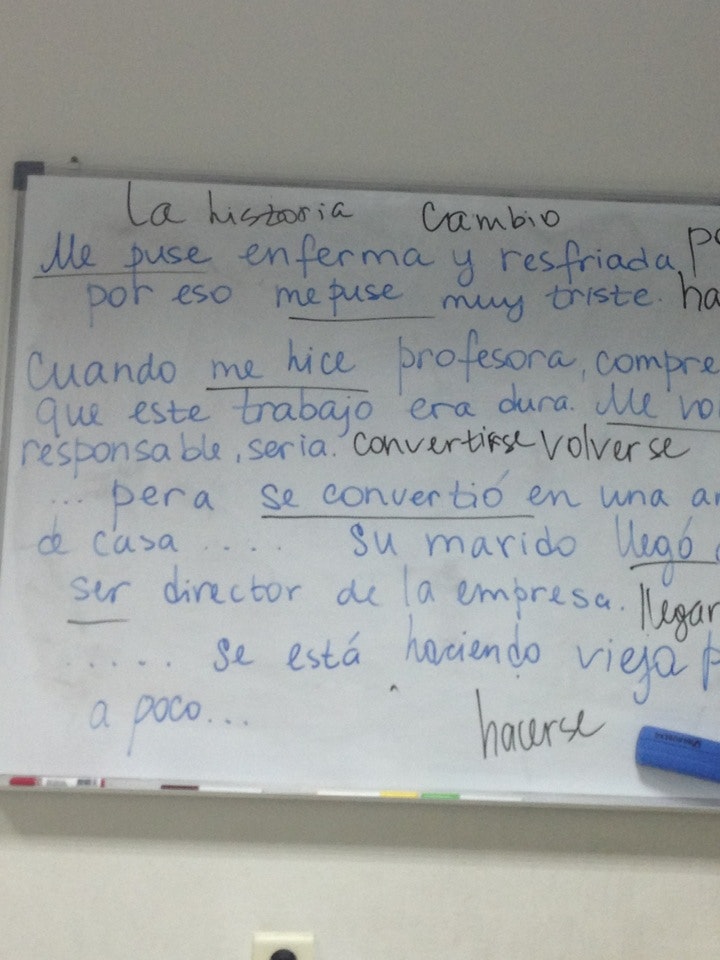 La historia cambio
Me puse enferma y resfriada po
por eso me puse muy triste. ha
Cuando me hice profesora, compre
que este trabajo era dura. Me vo
responsable, seria. convertirse volverse
... pera se convirtió en una am
de casa .... Su marido llegó a
ser director de la empresa. llegar
..... se está haciendo vieja p
a poco... hacerse